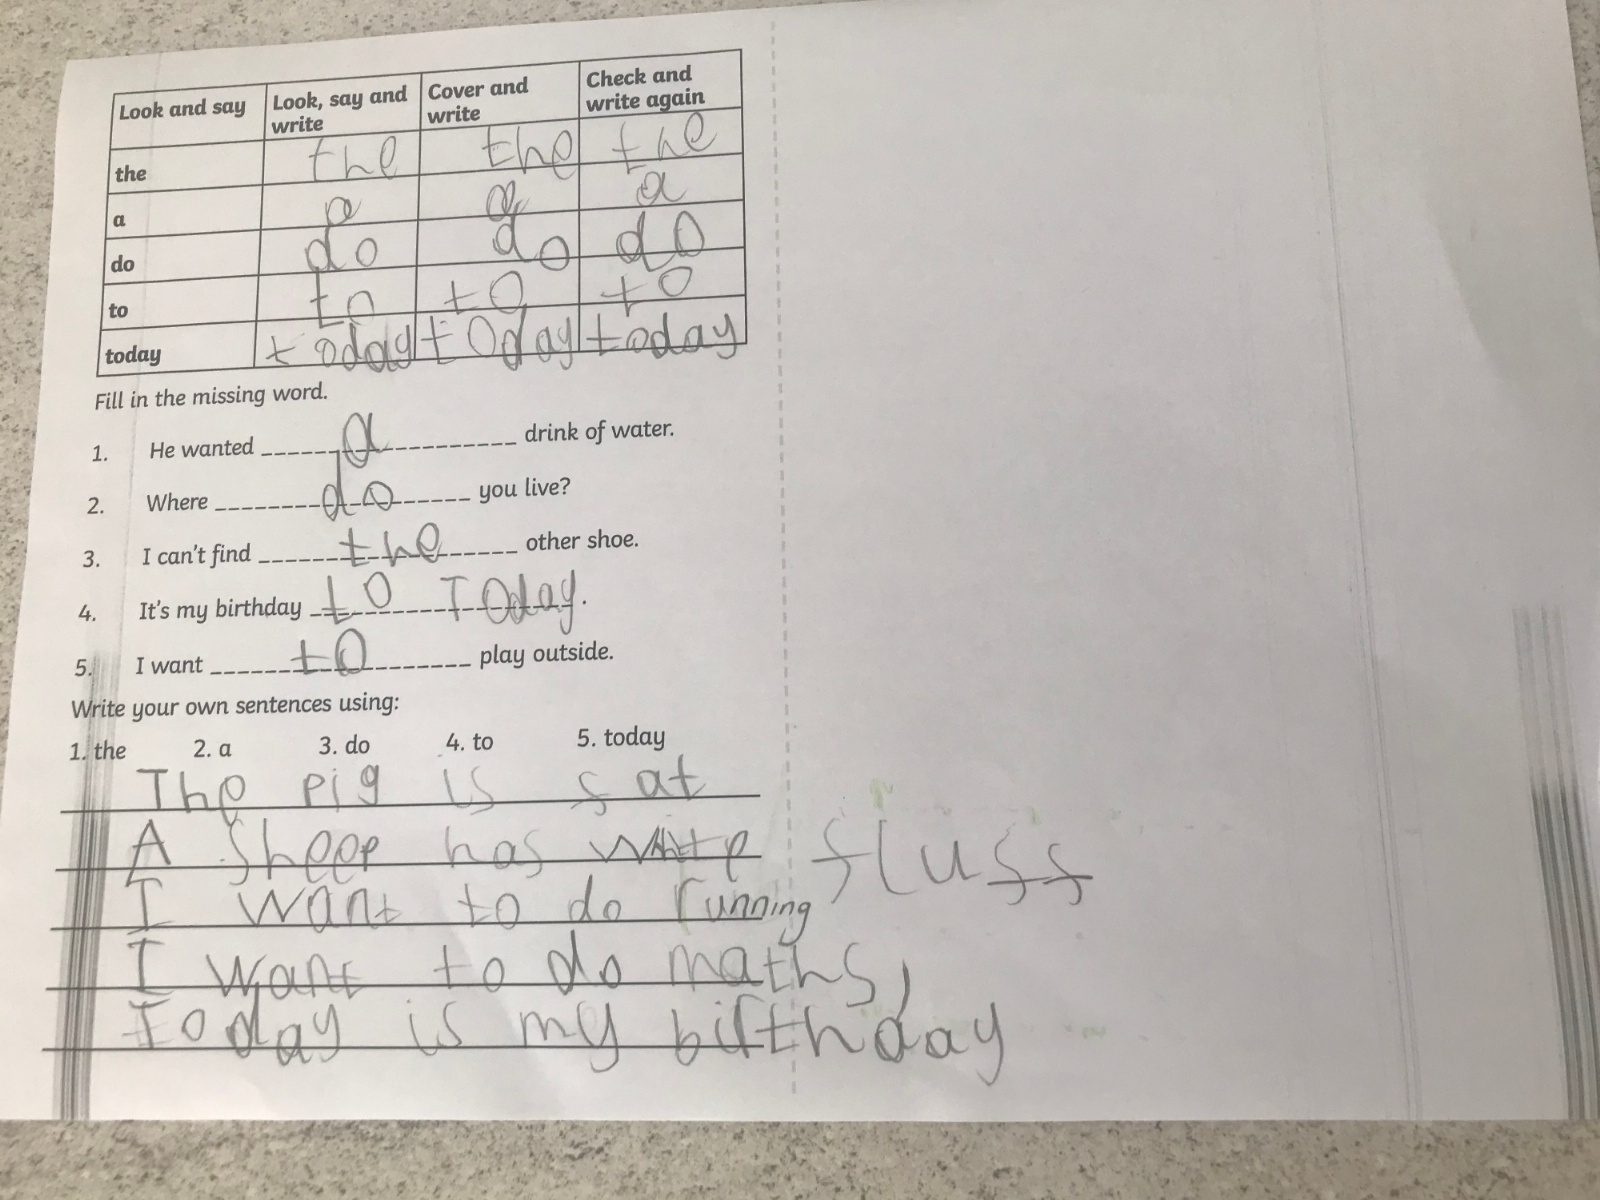 Look and say Look, say and write Cover and write Check and write again
the the the the
a a a a
do do do do
to to to to
today today today today
Fill in the missing word.
1. He wanted a drink of water.
2. Where do you live?
3. I can't find the other shoe.
4. It's my birthday to Today.
5. I want to play outside.
Write your own sentences using:
1. the 2. a 3. do 4. to 5. today
The pig is fat
A sheep has white fluff
I want to do running
I want to do maths,
Today is my birthday